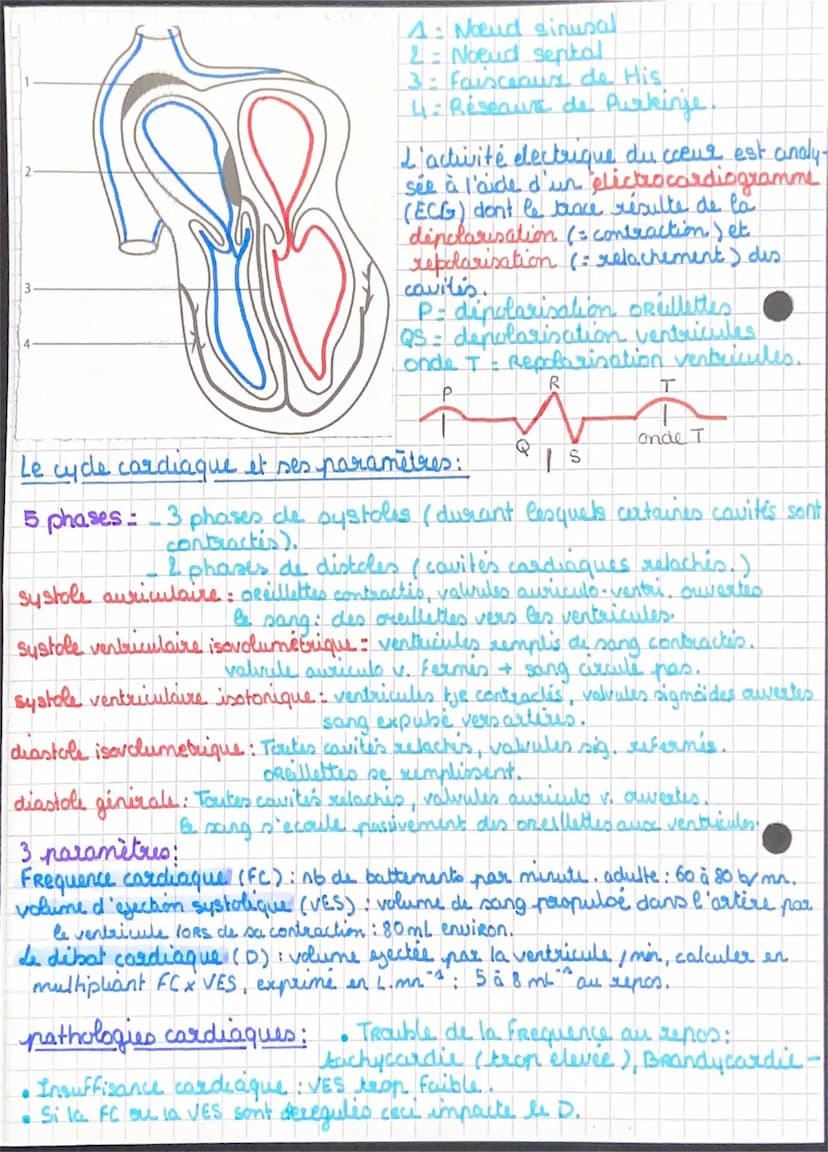 1
2
3
4
1 : Nœud sinusal
2 = Nœud septal
3 : Faisceaux de His
4 : Réseaux de Purkinje.
L'activité électrique du cœur est analy-
sée à l'aide d'un électrocardiogramme
(ECG) dont le tracé résulte de la
dépolarisation (= contraction) et
repolarisation (= relachement) des
cavités.
P = dépolarisation oreillettes
QS = dépolarisation ventricules
onde T = Repolarisation ventricules.
P
R
T
Q
S
onde T
Le cycle cardiaque et ses paramètres :
5 phases : - 3 phases de systoles (durant lesquels certaines cavités sont
contractés).
- 2 phases de distoles (cavités cardiaques relachés.)
systole auriculaire : oreillettes contractés, valvules auriculo-ventri. ouvertes
le sang : des oreillettes vers les ventricules.
systole ventriculaire isovolumétrique = ventricules remplis de sang contractés.
valvule auriculo v. fermés + sang circule pas.
systole ventriculaire isotonique : ventricules tjs contractés, valvules sigmoïdes ouvertes
sang expulsé vers artères.
diastole isovolumetrique : Toutes cavités relachés, valvules sig. refermés.
oreillettes se remplissent.
diastole générale : Toutes cavités relachés, valvules auriculo v. ouvertes.
le sang s'ecoule passivement des oreillettes aux ventricules.
3 paramètres :
Frequence cardiaque (FC) : nb de battements par minute. adulte : 60 à 80 b/mn.
volume d'ejection systolique (VES) : volume de sang propulsé dans l'artère par
le ventricule lors de sa contraction : 80 mL environ.
Le débat cardiaque (D) : volume ejectée par la ventricule /min, calculer en
multipliant FC x VES, exprimé en L.mn⁻¹ : 5 à 8 mL⁻¹ au repos.
pathologies cardiaques : • Trouble de la frequence au repos :
tachycardie (trop elevée), Brandycardie -
• Insuffisance cardiaque : VES trop faible.
• Si la FC ou la VES sont deregulés ceci impacte le D.